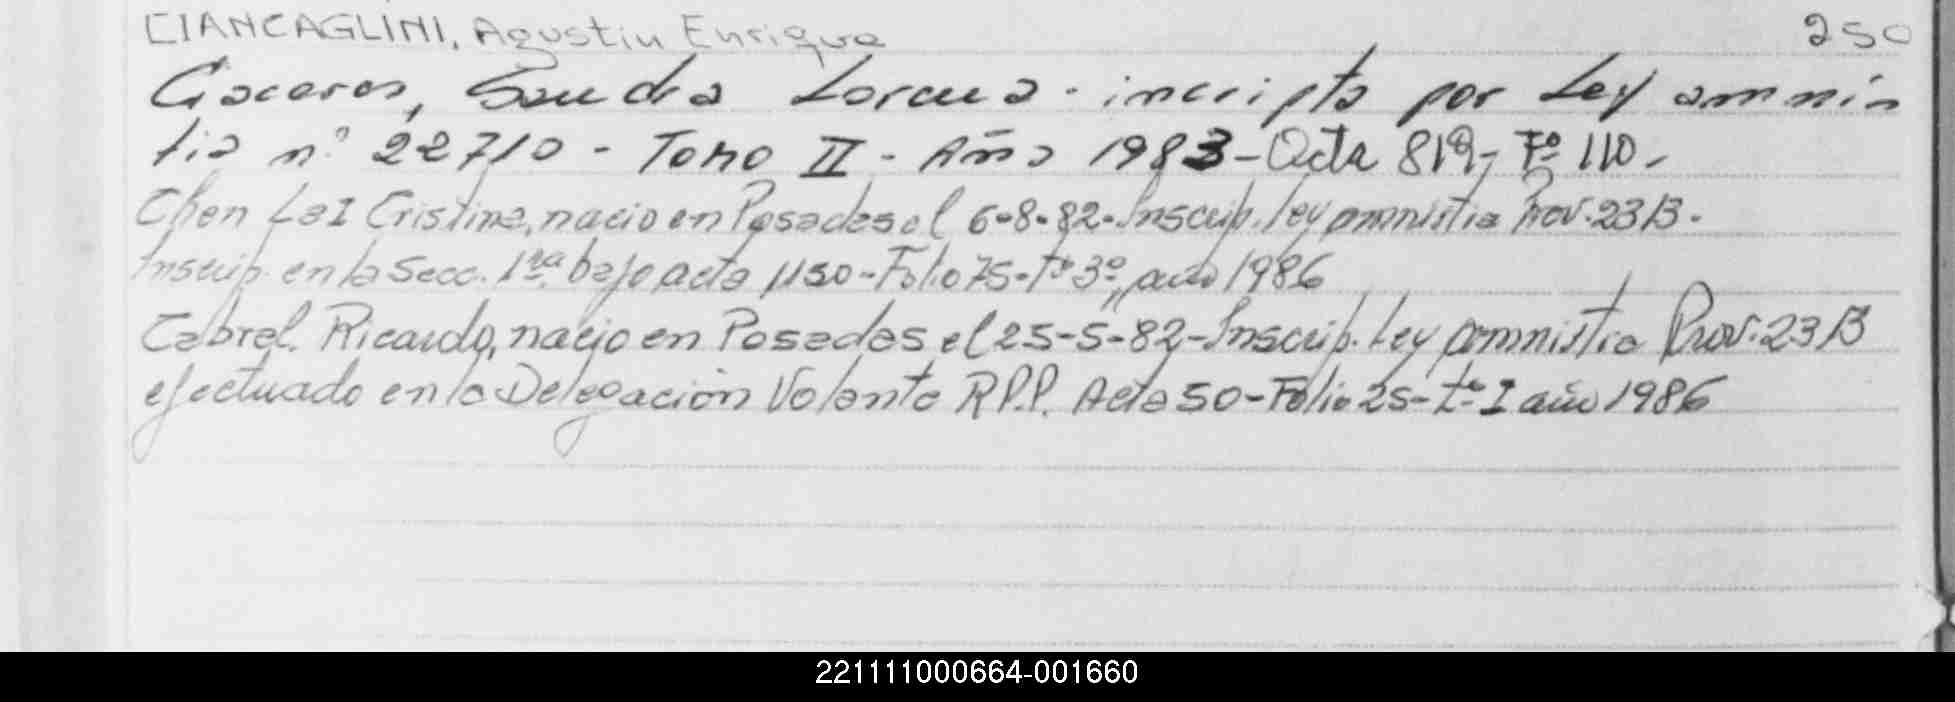 CIANCAGLINI, Agustin Enrique 250
Caceres, Sandra Lorena - inscripta por Ley amnis
tia n° 22710 - Tomo II - Año 1983 - Acta 819, F° 110 -
Chen Lai Cristina, nacio en Posadas el 6-8-82 - Inscrip. Ley amnistia Prov. 2313 -
Inscrip. en la Secc. 1ra. bajo acta 1150 - Folio 75 - T° 3°, año 1986
Cabral Ricardo, nacio en Posadas el 25-5-82 - Inscrip. Ley amnistia Prov. 2313
efectuado en la Delegación Volante R.P.P. Acta 50 - Folio 25 - t° I año 1986
221111000664-001660